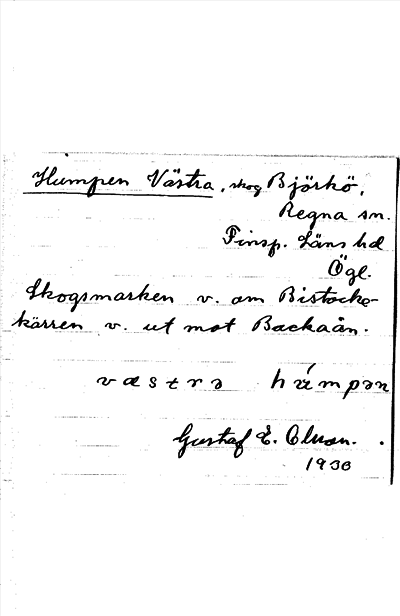 Humpen Västra, skog Björkö,
Regna sn.
Finsp. Läns hd
Ögl.
Skogsmarken v. om Bistocke-
kärren v. ut mot Backaån.
væstrə húmpən
Gustaf E. Olsson.
1930